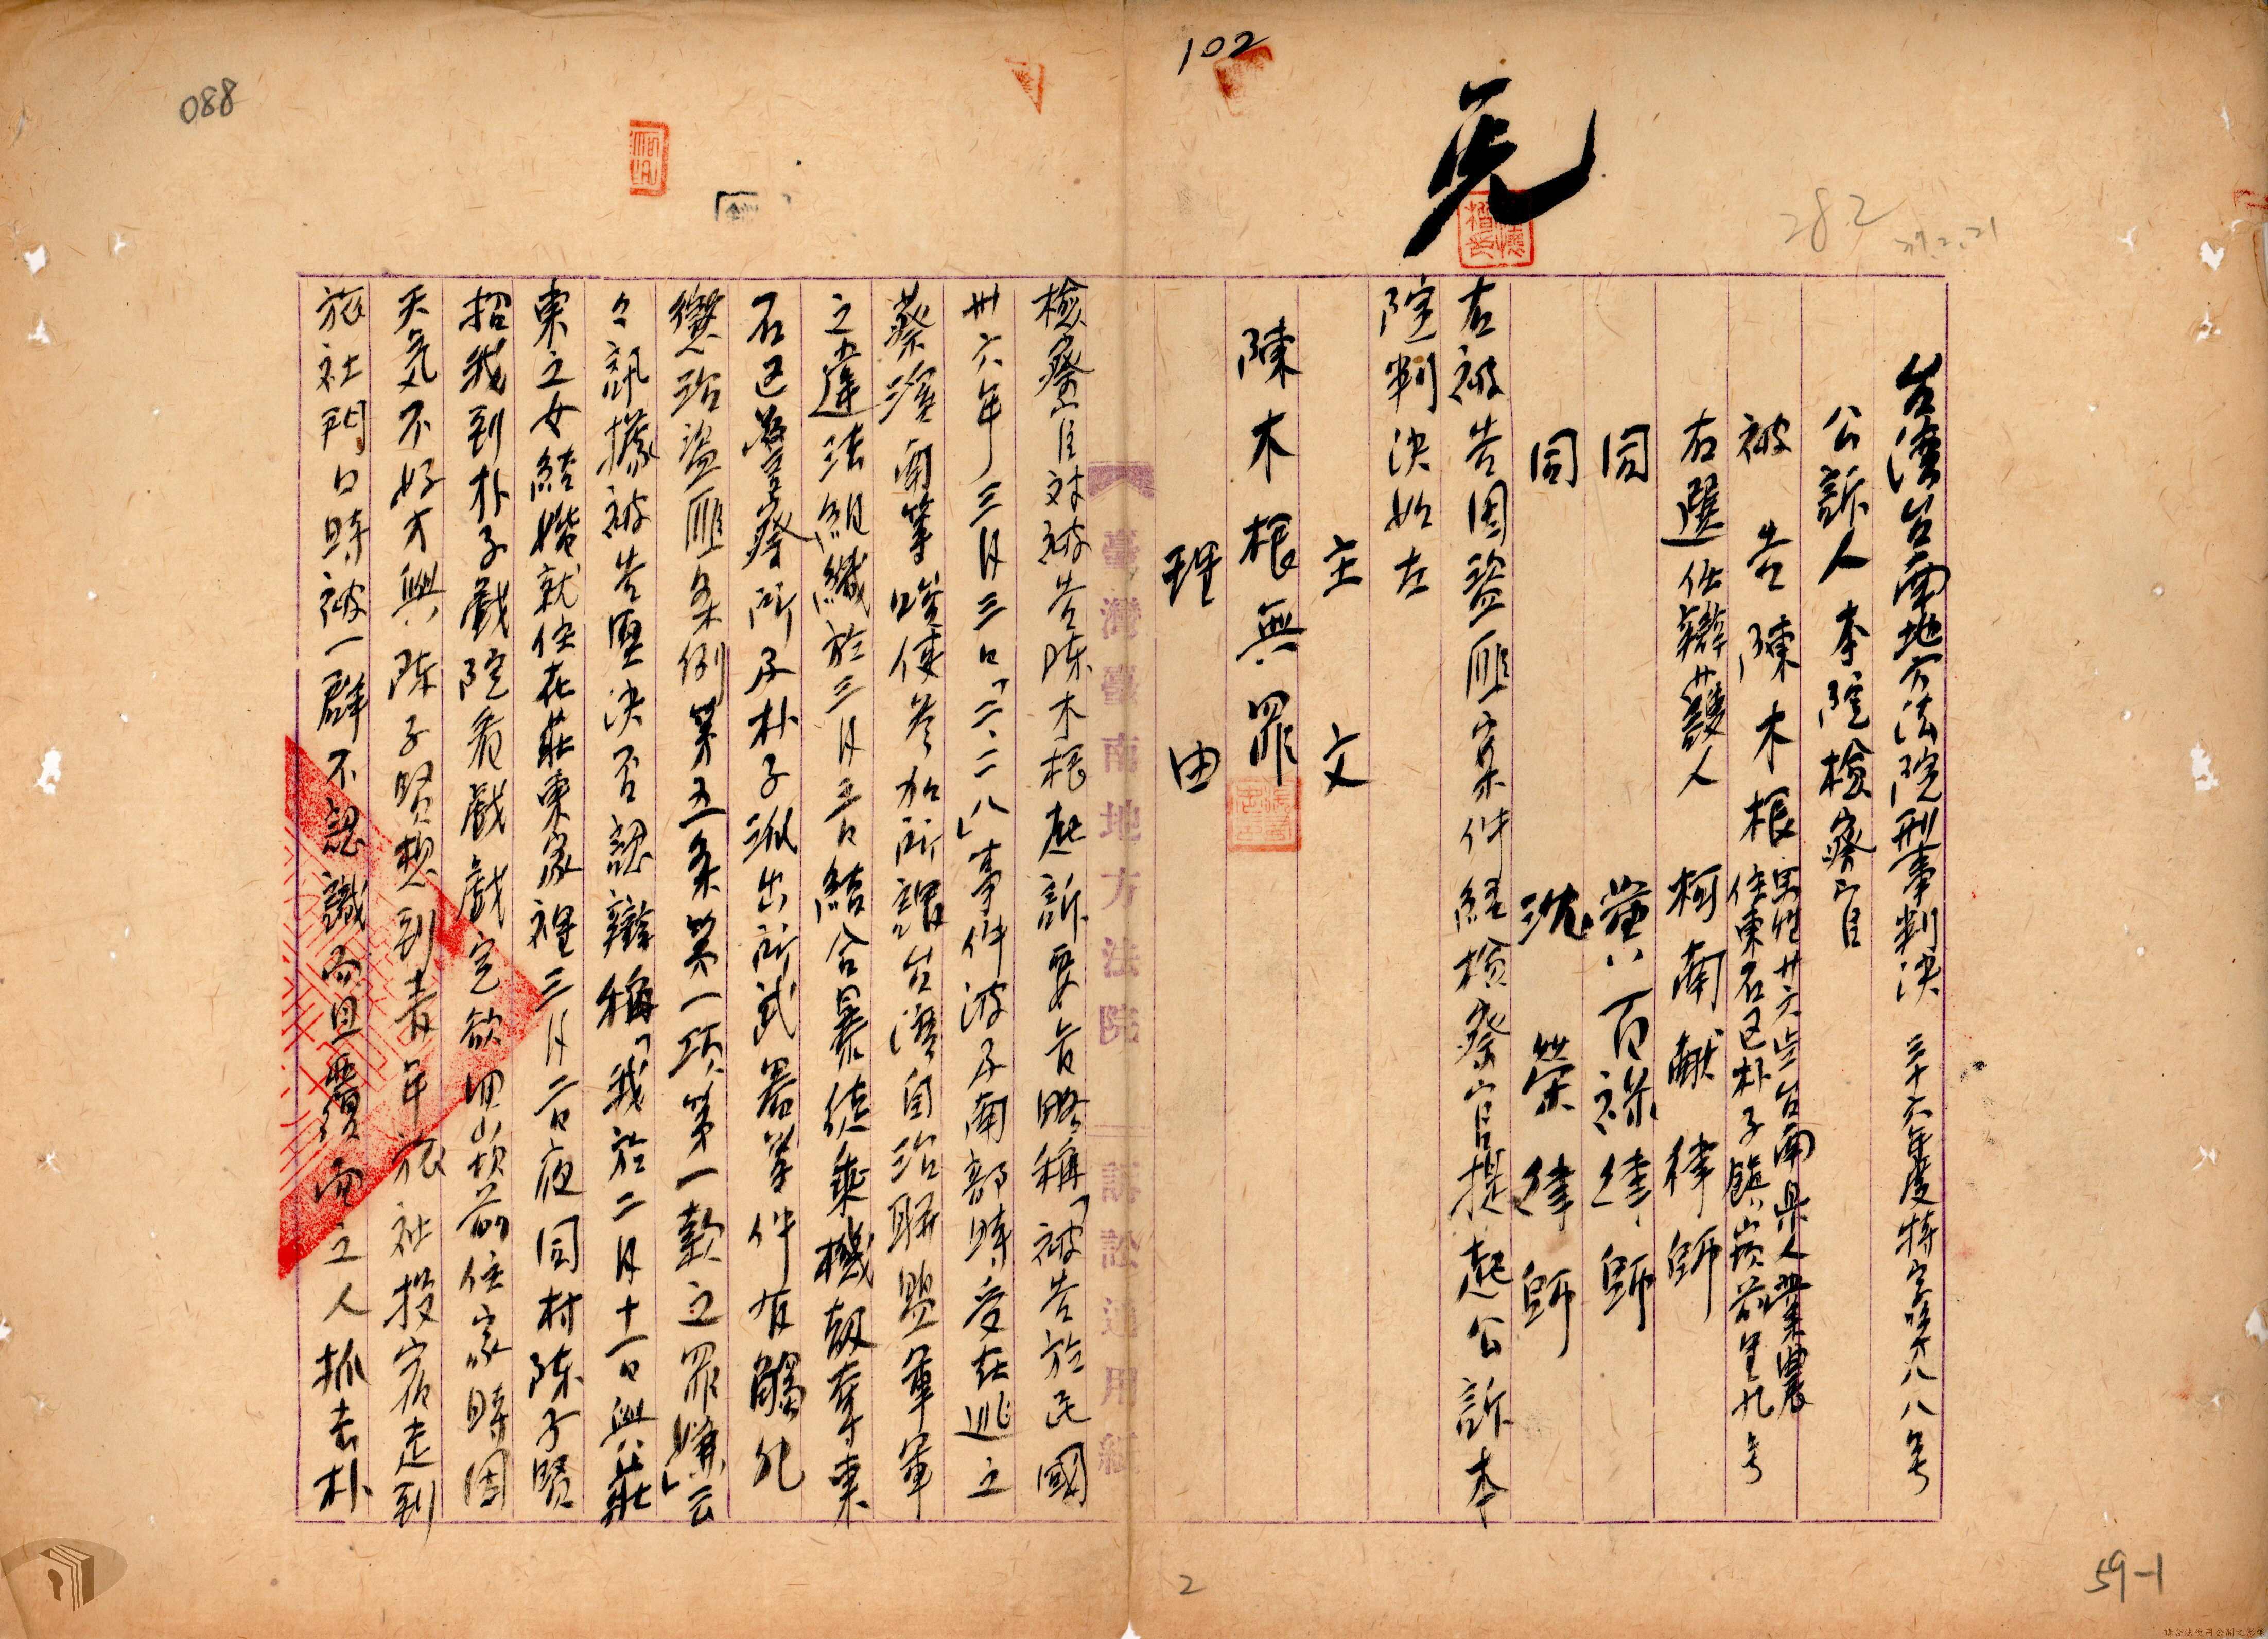 102
088
282
37.2.21
台湾台南地方法院刑事判決 三十六年度特字第八八号
公訴人 本院檢察官
被告 陳木根 男性廿六歲台南県人業農
住東石区朴子鎮崁前里九号
右選任辯護人 柯南献律師
同 黃百祿律師
同 沈榮律師
右被告因盜匪案件経檢察官提起公訴本
院判決如左
主文
陳木根無罪
理由
臺灣臺南地方法院 訴訟達用紙
檢察官対被告陈木根起訴要旨略稱「被告於民國
卅六年三月三日「二、二八」事件波及南部時受在逃之
蔡溪南等唆使參加所謂台灣自治聯盟軍軍
之違法組織於三月三日結合暴徒乘機刼奪東
石区警察所及朴子派出所武器等件有觸犯
懲治盜匪条例第五条第一項第一款之罪嫌」云
々訊據被告堅决否認辯稱「我於二月十一日與莊
東之女結婚就住在莊東家裡三月二日夜同村陈子賢
招我到朴子戲院看戲戲完欲囬崁前住家時因
天気不好才與陈子賢想到青年旅社投宿走到
旅社門口時被一群不認識而且覆面之人抓去朴
2
59-1
請合法使用公開之影像